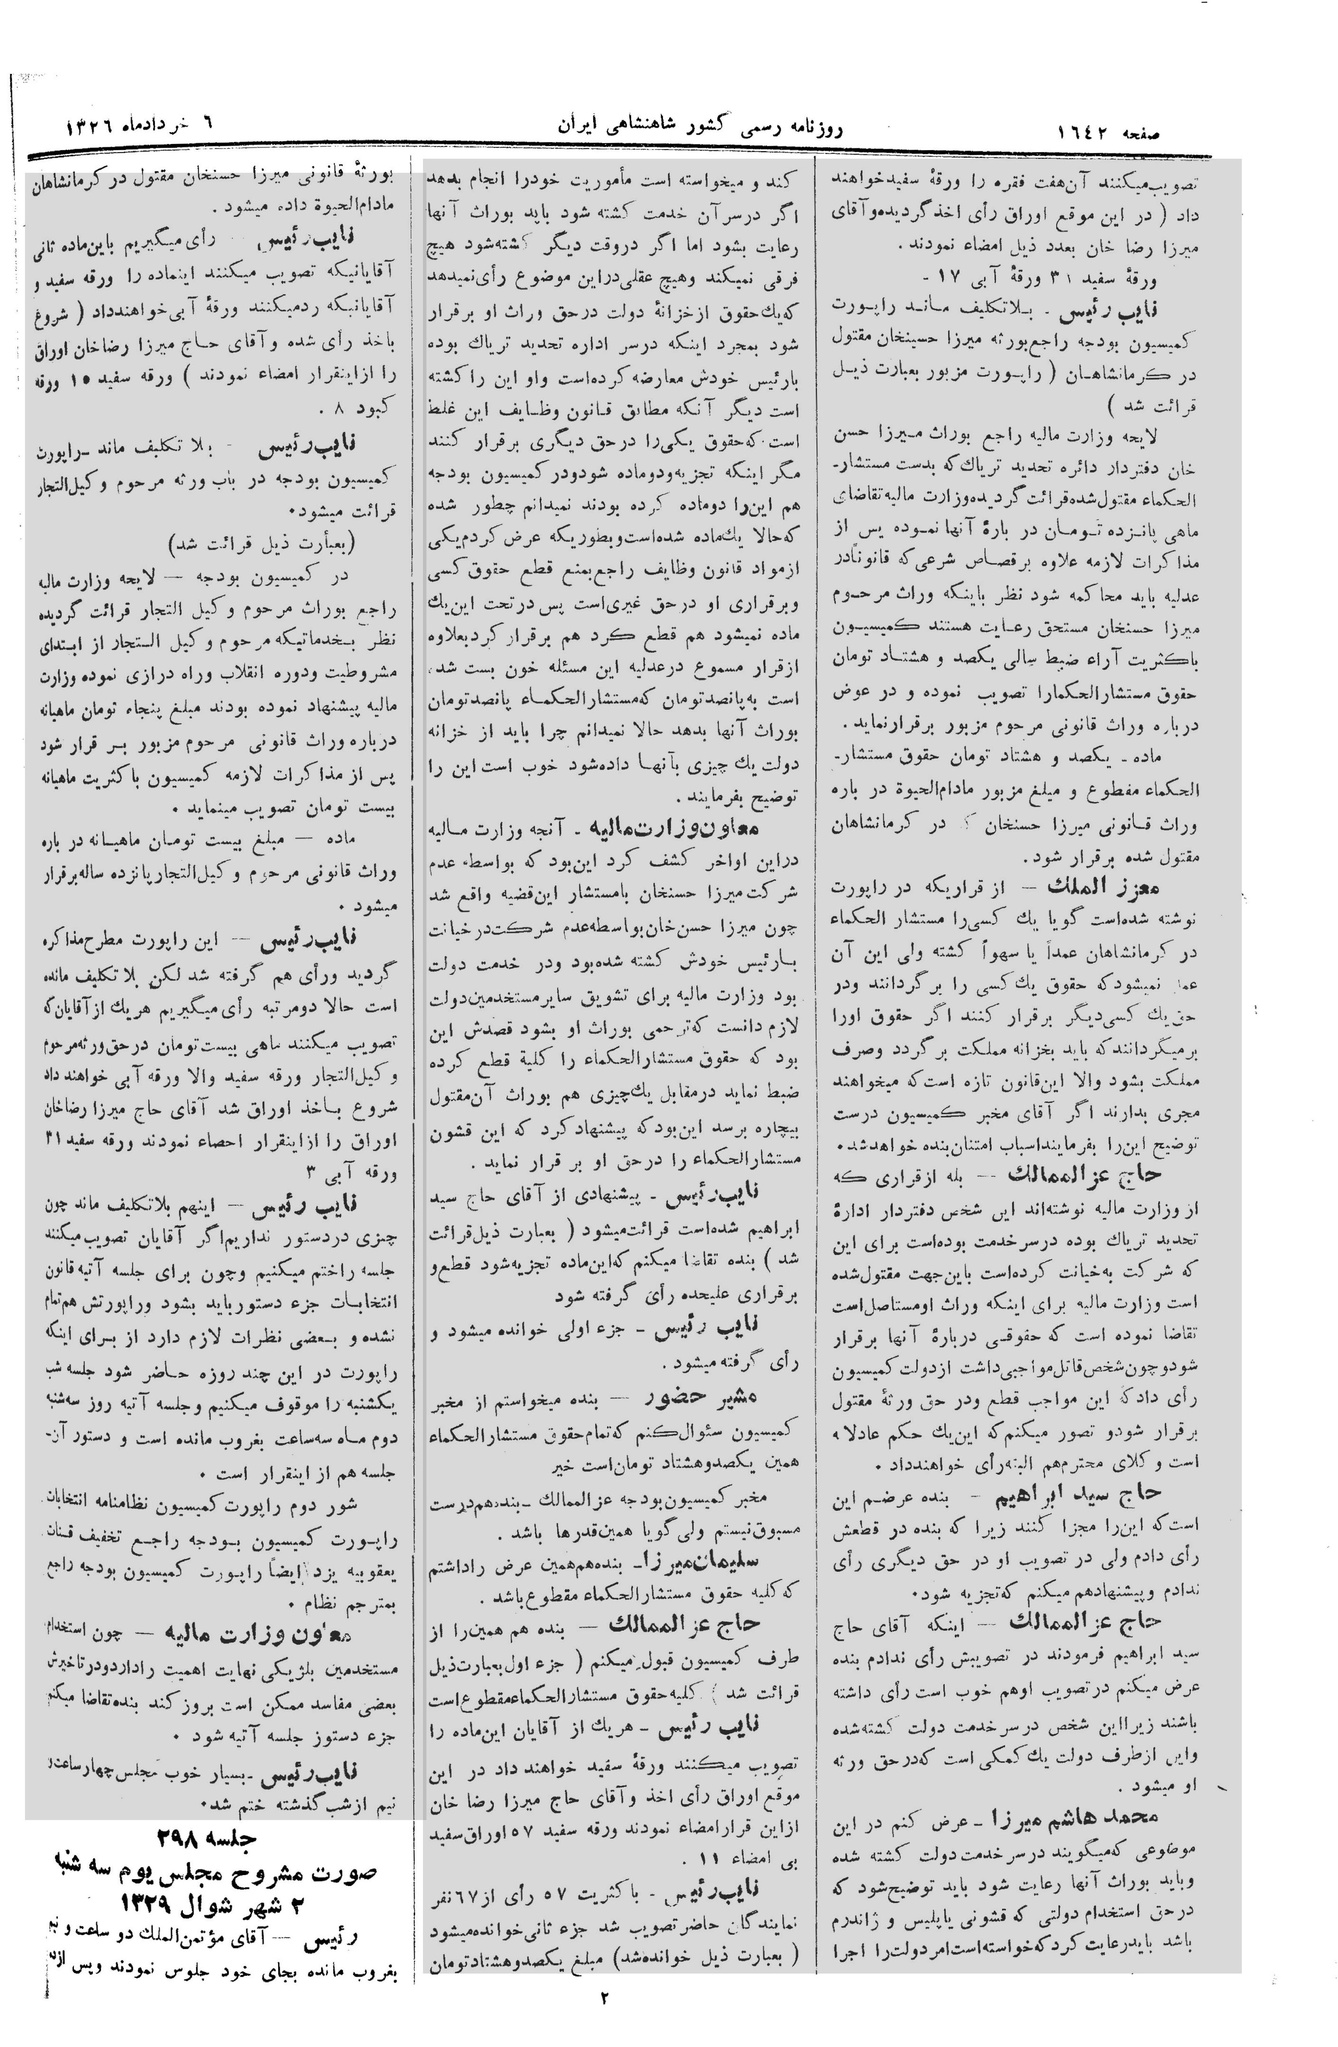 صفحه ۱٦٤۲
روزنامه رسمی کشور شاهنشاهی ایران
٦ خردادماه ۱۳۲٦
تصویب میکنند آن هفت فقره را ورقهٔ سفید خواهند
داد ( در این موقع اوراق رأی اخذ گردیده و آقای
میرزا رضا خان بعدد ذیل امضاء نمودند .
ورقهٔ سفید ۳۱ ورقهٔ آبی ۱۷ -
نایب رئیس - بلاتکلیف ماند راپورت
کمیسیون بودجه راجع بورثه میرزا حسینخان مقتول
در کرمانشاهان ( راپورت مزبور بعبارت ذیل
قرائت شد )
لایحه وزارت مالیه راجع بوراث میرزا حسن
خان دفتردار دائره تحدید تریاك که بدست مستشار-
الحکماء مقتول شده قرائت گردیده وزارت مالیه تقاضای
ماهی پانزده تومان در بارهٔ آنها نموده پس از
مذاکرات لازمه علاوه بر قصاص شرعی که قانوناً در
عدلیه باید محاکمه شود نظر باینکه وراث مرحوم
میرزا حسنخان مستحق رعایت هستند کمیسیون
باکثریت آراء ضبط سالی یکصد و هشتاد تومان
حقوق مستشار الحکما را تصویب نموده و در عوض
درباره وراث قانونی مرحوم مزبور برقرار نماید .
ماده - یکصد و هشتاد تومان حقوق مستشار-
الحکماء مقطوع و مبلغ مزبور مادام الحیوة در باره
وراث قانونی میرزا حسنخان که در کرمانشاهان
مقتول شده برقرار شود .
معزز الملك — از قراریکه در راپورت
نوشته شده است گویا یك کسی را مستشار الحکماء
در کرمانشاهان عمداً یا سهواً کشته ولی این آن
عمل نمیشود که حقوق یك کسی را بر گردانند و در
حق یك کسی دیگر برقرار کنند اگر حقوق او را
بر میگردانند که باید بخزانه مملکت بر گردد و صرف
مملکت بشود والا این قانون تازه است که میخواهند
مجری بدارند اگر آقای مخبر کمیسیون درست
توضیح این را بفرمایند اسباب امتنان بنده خواهد شد .
حاج عز الممالك — بله از قراری که
از وزارت مالیه نوشته اند این شخص دفتردار ادارهٔ
تحدید تریاك بوده در سر خدمت بوده است برای این
که شرکت به خیانت کرده است باین جهت مقتول شده
است وزارت مالیه برای اینکه وراث او مستاصل است
تقاضا نموده است که حقوقی دربارهٔ آنها برقرار
شود و چون شخص قاتل مواجبی داشت از دولت کمیسیون
رأی داد که این مواجب قطع و در حق ورثهٔ مقتول
برقرار شود و تصور میکنم که این یك حکم عادلانه
است و وکلای محترم هم البته رأی خواهند داد .
حاج سید ابراهیم - بنده عرضم این
است که این را مجزا کنند زیرا که بنده در قطعش
رأی دادم ولی در تصویب او در حق دیگری رأی
ندادم و پیشنهاد هم میکنم که تجزیه شود .
حاج عز الممالك — اینکه آقای حاج
سید ابراهیم فرمودند در تصویبش رأی ندادم بنده
عرض میکنم در تصویب او هم خوب است رأی داشته
باشند زیرا این شخص در سر خدمت دولت کشته شده
و این از طرف دولت یك کمکی است که در حق ورثه
او میشود .
محمد هاشم میرزا - عرض کنم در این
موضوعی که میگویند در سر خدمت دولت کشته شده
و باید بوراث آنها رعایت شود باید توضیح شود که
در حق استخدام دولتی که قشونی یا پلیس و ژاندرم
باشد باید رعایت کرد که خواسته است امر دولت را اجرا
کند و میخواسته است مأموریت خود را انجام بدهد
اگر در سر آن خدمت کشته شود باید بوراث آنها
رعایت بشود اما اگر در وقت دیگر کشته شود هیچ
فرقی نمیکند و هیچ عقلی در این موضوع رأی نمیدهد
که یك حقوق از خزانهٔ دولت در حق وراث او برقرار
شود بمجرد اینکه در سر اداره تحدید تریاك بوده
با رئیس خودش معارضه کرده است و او این را کشته
است دیگر آنکه مطابق قانون وظایف این غلط
است که حقوق یکی را در حق دیگری برقرار کنند
مگر اینکه تجزیه و دو ماده شود و در کمیسیون بودجه
هم این را دو ماده کرده بودند نمیدانم چطور شده
که حالا یك ماده شده است و بطوریکه عرض کردم یکی
از مواد قانون وظایف راجع بمنع قطع حقوق کسی
و برقراری او در حق غیری است پس در تحت این یك
ماده نمیشود هم قطع کرد هم برقرار کرد بعلاوه
از قرار مسموع در عدلیه این مسئله خون بست شده
است به پانصد تومان که مستشار الحکماء پانصد تومان
بوراث آنها بدهد حالا نمیدانم چرا باید از خزانه
دولت یك چیزی بآنها داده شود خوب است این را
توضیح بفرمایند .
معاون وزارت مالیه - آنچه وزارت مالیه
در این اواخر کشف کرد این بود که بواسطه عدم
شرکت میرزا حسنخان با مستشار این قضیه واقع شد
چون میرزا حسن خان بواسطه عدم شرکت در خیانت
با رئیس خودش کشته شده بود و در خدمت دولت
بود وزارت مالیه برای تشویق سایر مستخدمین دولت
لازم دانست که ترحمی بوراث او بشود قصدش این
بود که حقوق مستشار الحکماء را کلیة قطع کرده
ضبط نماید در مقابل یك چیزی هم بوراث آن مقتول
بیچاره برسد این بود که پیشنهاد کرد که این قشون
مستشار الحکماء را در حق او بر قرار نماید .
نایب رئیس - پیشنهادی از آقای حاج سید
ابراهیم شده است قرائت میشود ( بعبارت ذیل قرائت
شد ) بنده تقاضا میکنم که این ماده تجزیه شود قطع و
برقراری علیحده رأی گرفته شود
نایب رئیس - جزء اولی خوانده میشود و
رأی گرفته میشود .
مشیر حضور — بنده میخواستم از مخبر
کمیسیون سئوال کنم که تمام حقوق مستشار الحکماء
همین یکصد و هشتاد تومان است خیر
مخبر کمیسیون بودجه عز الممالك - بنده هم درست
مسبوق نیستم ولی گویا همین قدرها باشد .
سلیمان میرزا - بنده هم همین عرض را داشتم
که کلیه حقوق مستشار الحکماء مقطوع باشد .
حاج عز الممالك — بنده هم همین را از
طرف کمیسیون قبول میکنم ( جزء اول بعبارت ذیل
قرائت شد ) کلیه حقوق مستشار الحکماء مقطوع است
نایب رئیس - هر یك از آقایان این ماده را
تصویب میکنند ورقهٔ سفید خواهند داد در این
موقع اوراق رأی اخذ و آقای حاج میرزا رضا خان
از این قرار امضاء نمودند ورقه سفید ۵۷ اوراق سفید
بی امضاء ۱۱ .
نایب رئیس - باکثریت ۵۷ رأی از ٦۷ نفر
نمایندگان حاضر تصویب شد جزء ثانی خوانده میشود
( بعبارت ذیل خوانده شد ) مبلغ یکصد و هشتاد تومان
بورثهٔ قانونی میرزا حسنخان مقتول در کرمانشاهان
مادام الحیوة داده میشود .
نایب رئیس - رأی میگیریم باین ماده ثانی
آقایانیکه تصویب میکنند اینماده را ورقه سفید و
آقایانیکه رد میکنند ورقهٔ آبی خواهند داد ( شروع
باخذ رأی شده و آقای حاج میرزا رضا خان اوراق
را از اینقرار امضاء نمودند ) ورقه سفید ۱۵ ورقه
کبود ۸ .
نایب رئیس - بلا تکلیف ماند - راپورت
کمیسیون بودجه در باب ورثه مرحوم وکیل التجار
قرائت میشود .
(بعبارت ذیل قرائت شد)
در کمیسیون بودجه — لایحه وزارت مالیه
راجع بوراث مرحوم وکیل التجار قرائت گردیده
نظر بخدماتیکه مرحوم وکیل التجار از ابتدای
مشروطیت و دوره انقلاب و راه درازی نموده وزارت
مالیه پیشنهاد نموده بودند مبلغ پنجاه تومان ماهیانه
درباره وراث قانونی مرحوم مزبور بر قرار شود
پس از مذاکرات لازمه کمیسیون باکثریت ماهیانه
بیست تومان تصویب مینماید .
ماده — مبلغ بیست تومان ماهیانه در باره
وراث قانونی مرحوم وکیل التجار پانزده ساله برقرار
میشود .
نایب رئیس — این راپورت مطرح مذاکره
گردید و رأی هم گرفته شد لکن بلا تکلیف مانده
است حالا دو مرتبه رأی میگیریم هر یك از آقایان که
تصویب میکنند ماهی بیست تومان در حق ورثه مرحوم
وکیل التجار ورقه سفید والا ورقه آبی خواهند داد
شروع باخذ اوراق شد آقای حاج میرزا رضا خان
اوراق را از اینقرار احصاء نمودند ورقه سفید ۴۱
ورقه آبی ۳
نایب رئیس — اینهم بلاتکلیف ماند چون
چیزی در دستور نداریم اگر آقایان تصویب میکنند
جلسه را ختم میکنیم و چون برای جلسه آتیه قانون
انتخابات جزء دستور باید بشود و راپورتش هم تمام
نشده و بعضی نظرات لازم دارد از برای اینکه
راپورت در این چند روزه حاضر شود جلسه شب
یکشنبه را موقوف میکنیم و جلسه آتیه روز سه شنبه
دوم ماه سه ساعت بغروب مانده است و دستور آن-
جلسه هم از اینقرار است .
شور دوم راپورت کمیسیون نظامنامه انتخابات
راپورت کمیسیون بودجه راجع تخفیف قنات
یعقوبیه یزد ایضاً راپورت کمیسیون بودجه راجع
بمترجم نظام .
معاون وزارت مالیه — چون استخدام
مستخدمین بلژیکی نهایت اهمیت را دارد و در تاخیرش
بعضی مفاسد ممکن است بروز کند بنده تقاضا میکنم
جزء دستور جلسه آتیه شود .
نایب رئیس - بسیار خوب مجلس چهار ساعت و
نیم از شب گذشته ختم شد .
جلسه ۲۹۸
صورت مشروح مجلس یوم سه شنبه
۲ شهر شوال ۱۳۲۹
رئیس — آقای مؤتمن الملك دو ساعت و نیم
بغروب مانده بجای خود جلوس نمودند و پس از
۲